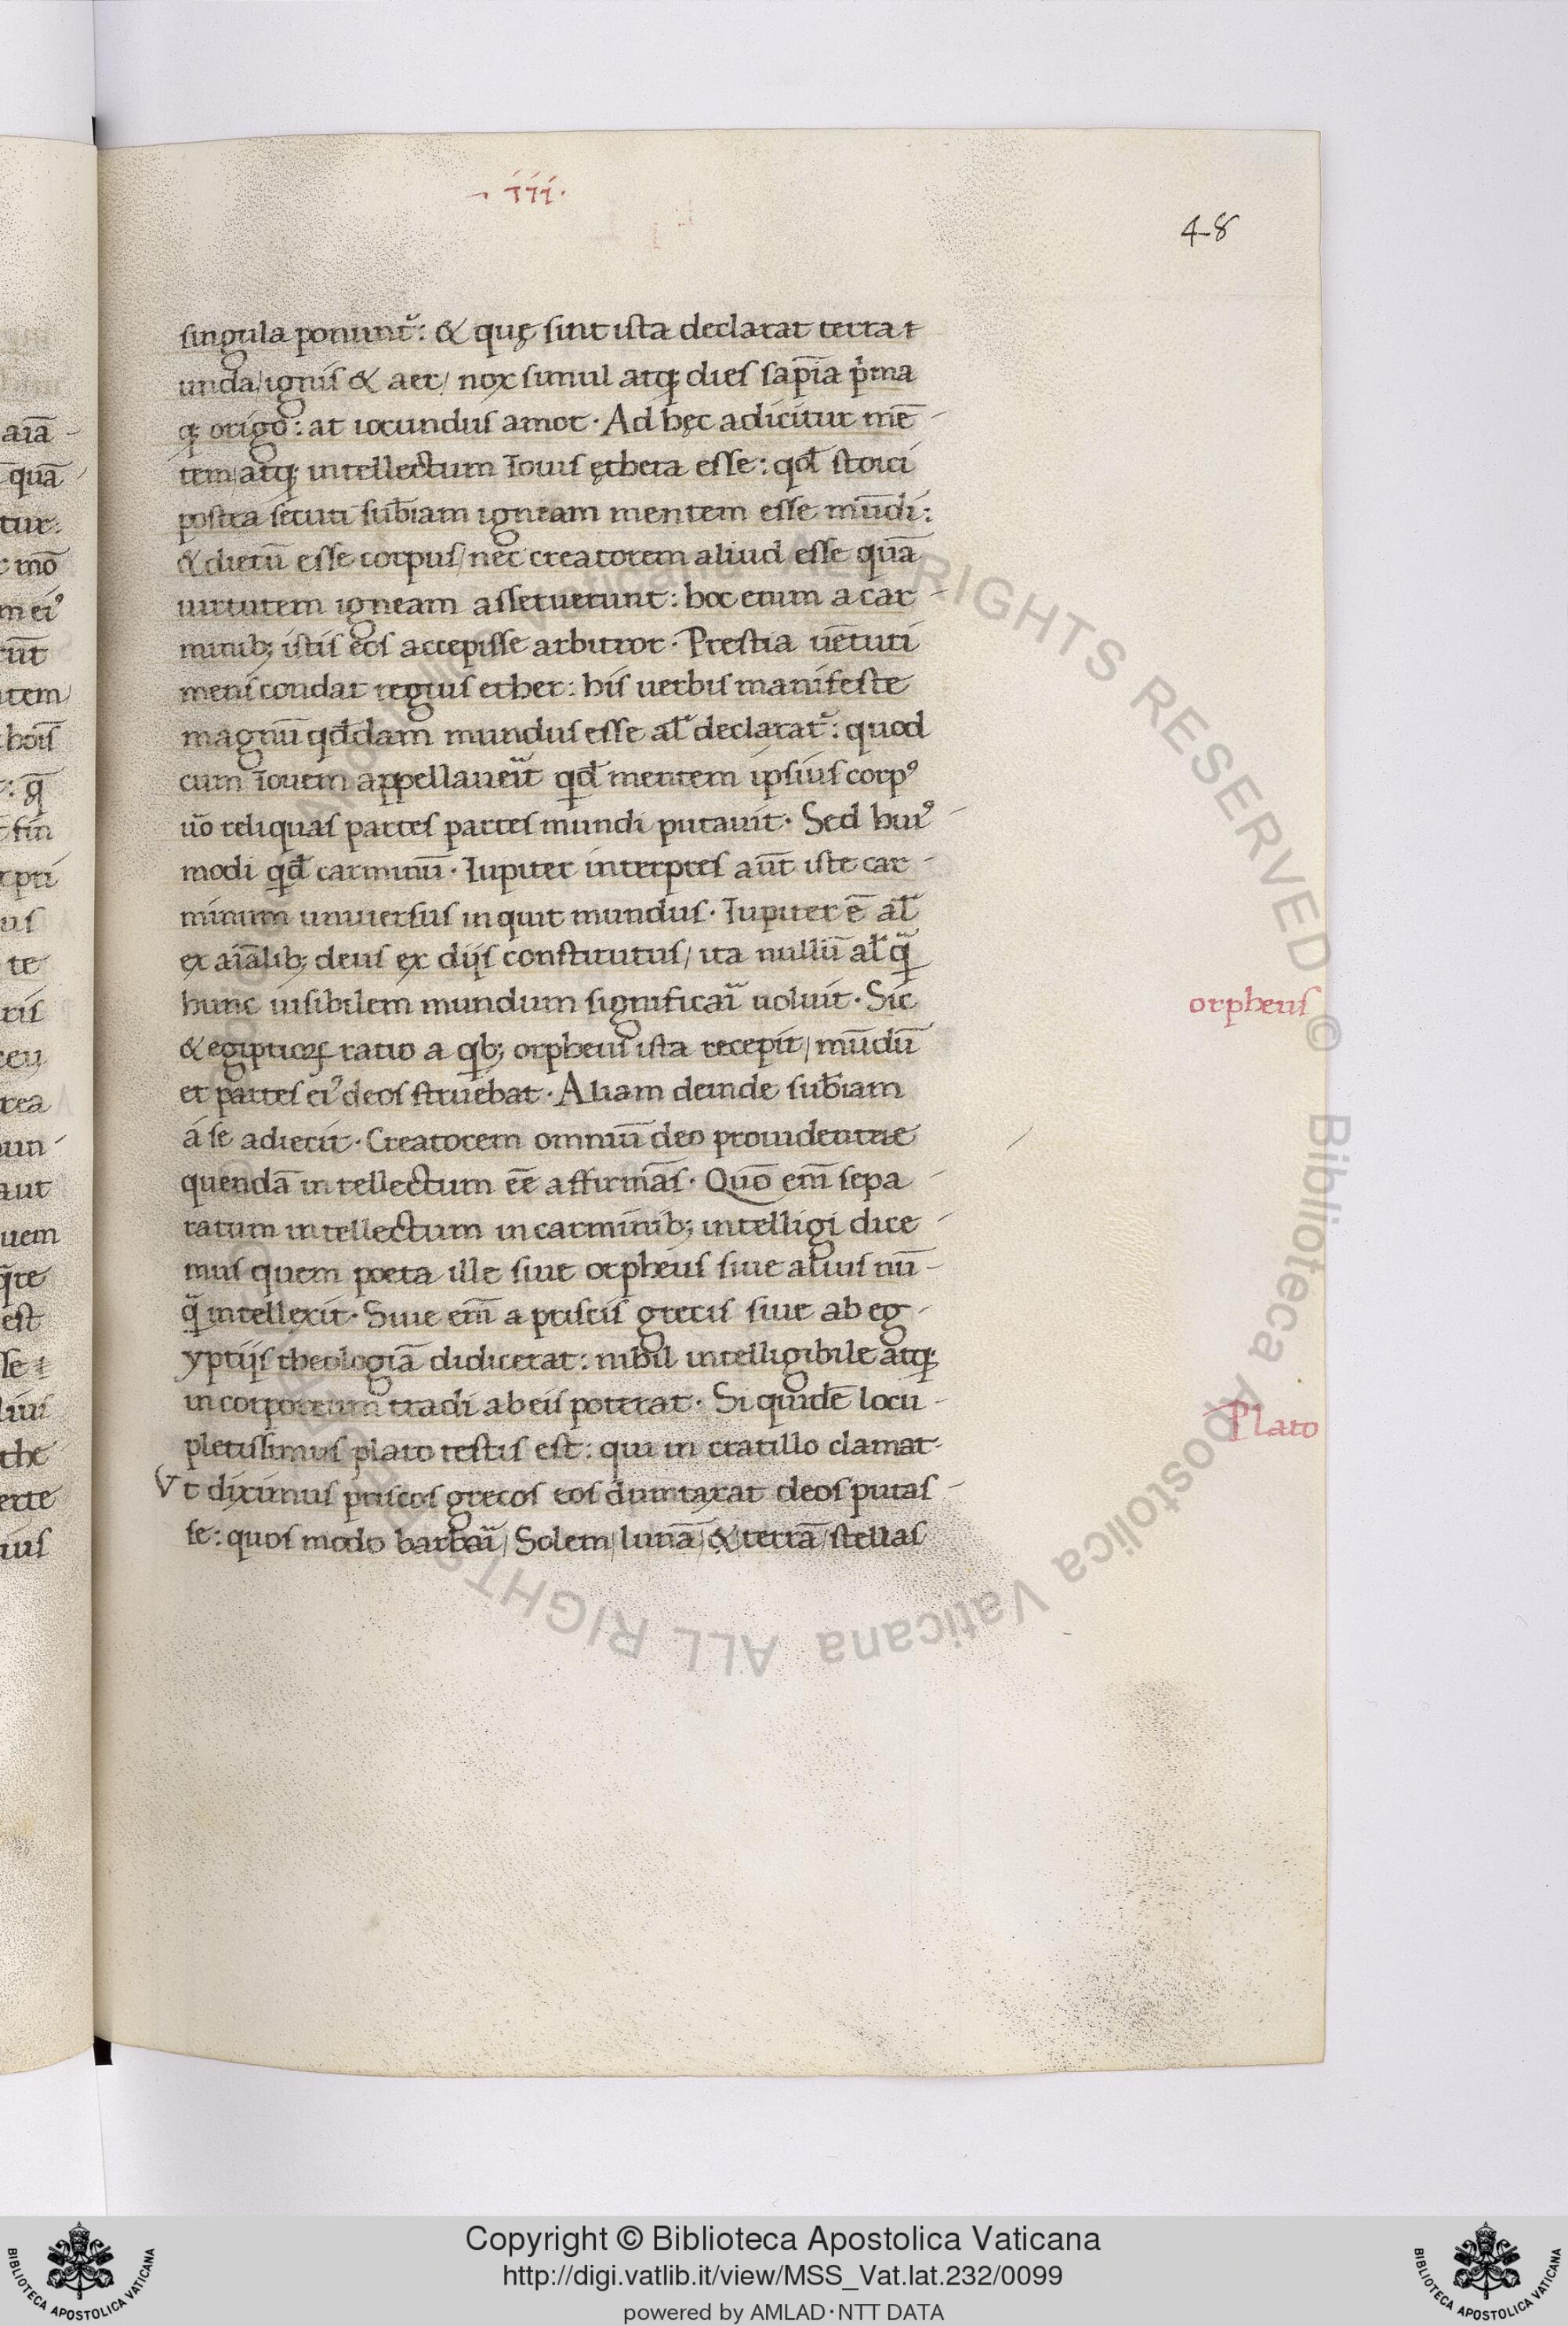 · iii ·
48
singula ponunt᷑: & quę sint ista declarat terra &
unda/ ignis & aer/ nox simul atq; dies sap̄ia p̍ma
q; origo: at iocundus amor · Ad hęc adicitur mē-
tem/ atq; intellectum Iouis ęthera esse: qđ stoici
postea secuti sub̄iam igneam mentem esse mūdi:
& dictū esse corpus/ nec creatorem aliud esse quā
uirtutem igneam asseruerunt: hoc enim a car-
minib; istis eos accepisse arbitror · Prestia
mens condar regius ether: his uerbis manifeste
magnū qđdam mundus esse al̄ declarat᷑: quod
cum Iouem appellauerit qđ mentem ipsius corp᾽
ū̊o reliquas partes partes mundi putauit · Sed hui᾽-
modi qđ carminū · Iupiter interpres aūt iste car-
minum uniuersus inquit mundus · Iupiter ē al̄
ex aīalib; deus ex dijs constitutus/ ita nullū al̄ q̄
hunc uisibilem mundum significar̄i uoluit · Sic
& egiptioꝝ ratio a qb; orpheus ista recepit/ mūdū
et partes ei᾽ deos struebat · Aliam deinde sub̄iam
á se adiecit · Creatorem omniū deo prouidentie
quendā intellectum eē affirmās · Quō em̄ sepa-
ratum intellectum in carminib; intelligi dice-
mus quem poeta ille siue orpheus siue alius nū-
q̄ intellexit · Siue em̄ a priscis grecis siue ab eg-
yptijs theologiā didicerat: nihil intelligibile atq;
incorporeum tradi ab eis poterat · Si quidē locu-
pletissimus plato testis est: qui in cratillo clamat·
Vt diximus priscos grecos eos dumtaxat deos putas-
se: quos modo barbari/ Solem/ lunā/ & terrā/ stellas
orpheus
Plato
aiā-
quā
tur:
mō
m ei᾽
tem/
hoīs
: q̄
fin
pri
us
te
ris
ceu
rea
un-
aut
uem
q̄re
est
se &
lius
the
erte
ius
© Biblioteca Apostolica Vaticana ALL RIGHTS RESERVED
Copyright © Biblioteca Apostolica Vaticana
http://digi.vatlib.it/view/MSS_Vat.lat.232/0099
powered by AMLAD·NTT DATA
BIBLIOTECA APOSTOLICA VATICANA
BIBLIOTECA APOSTOLICA VATICANA